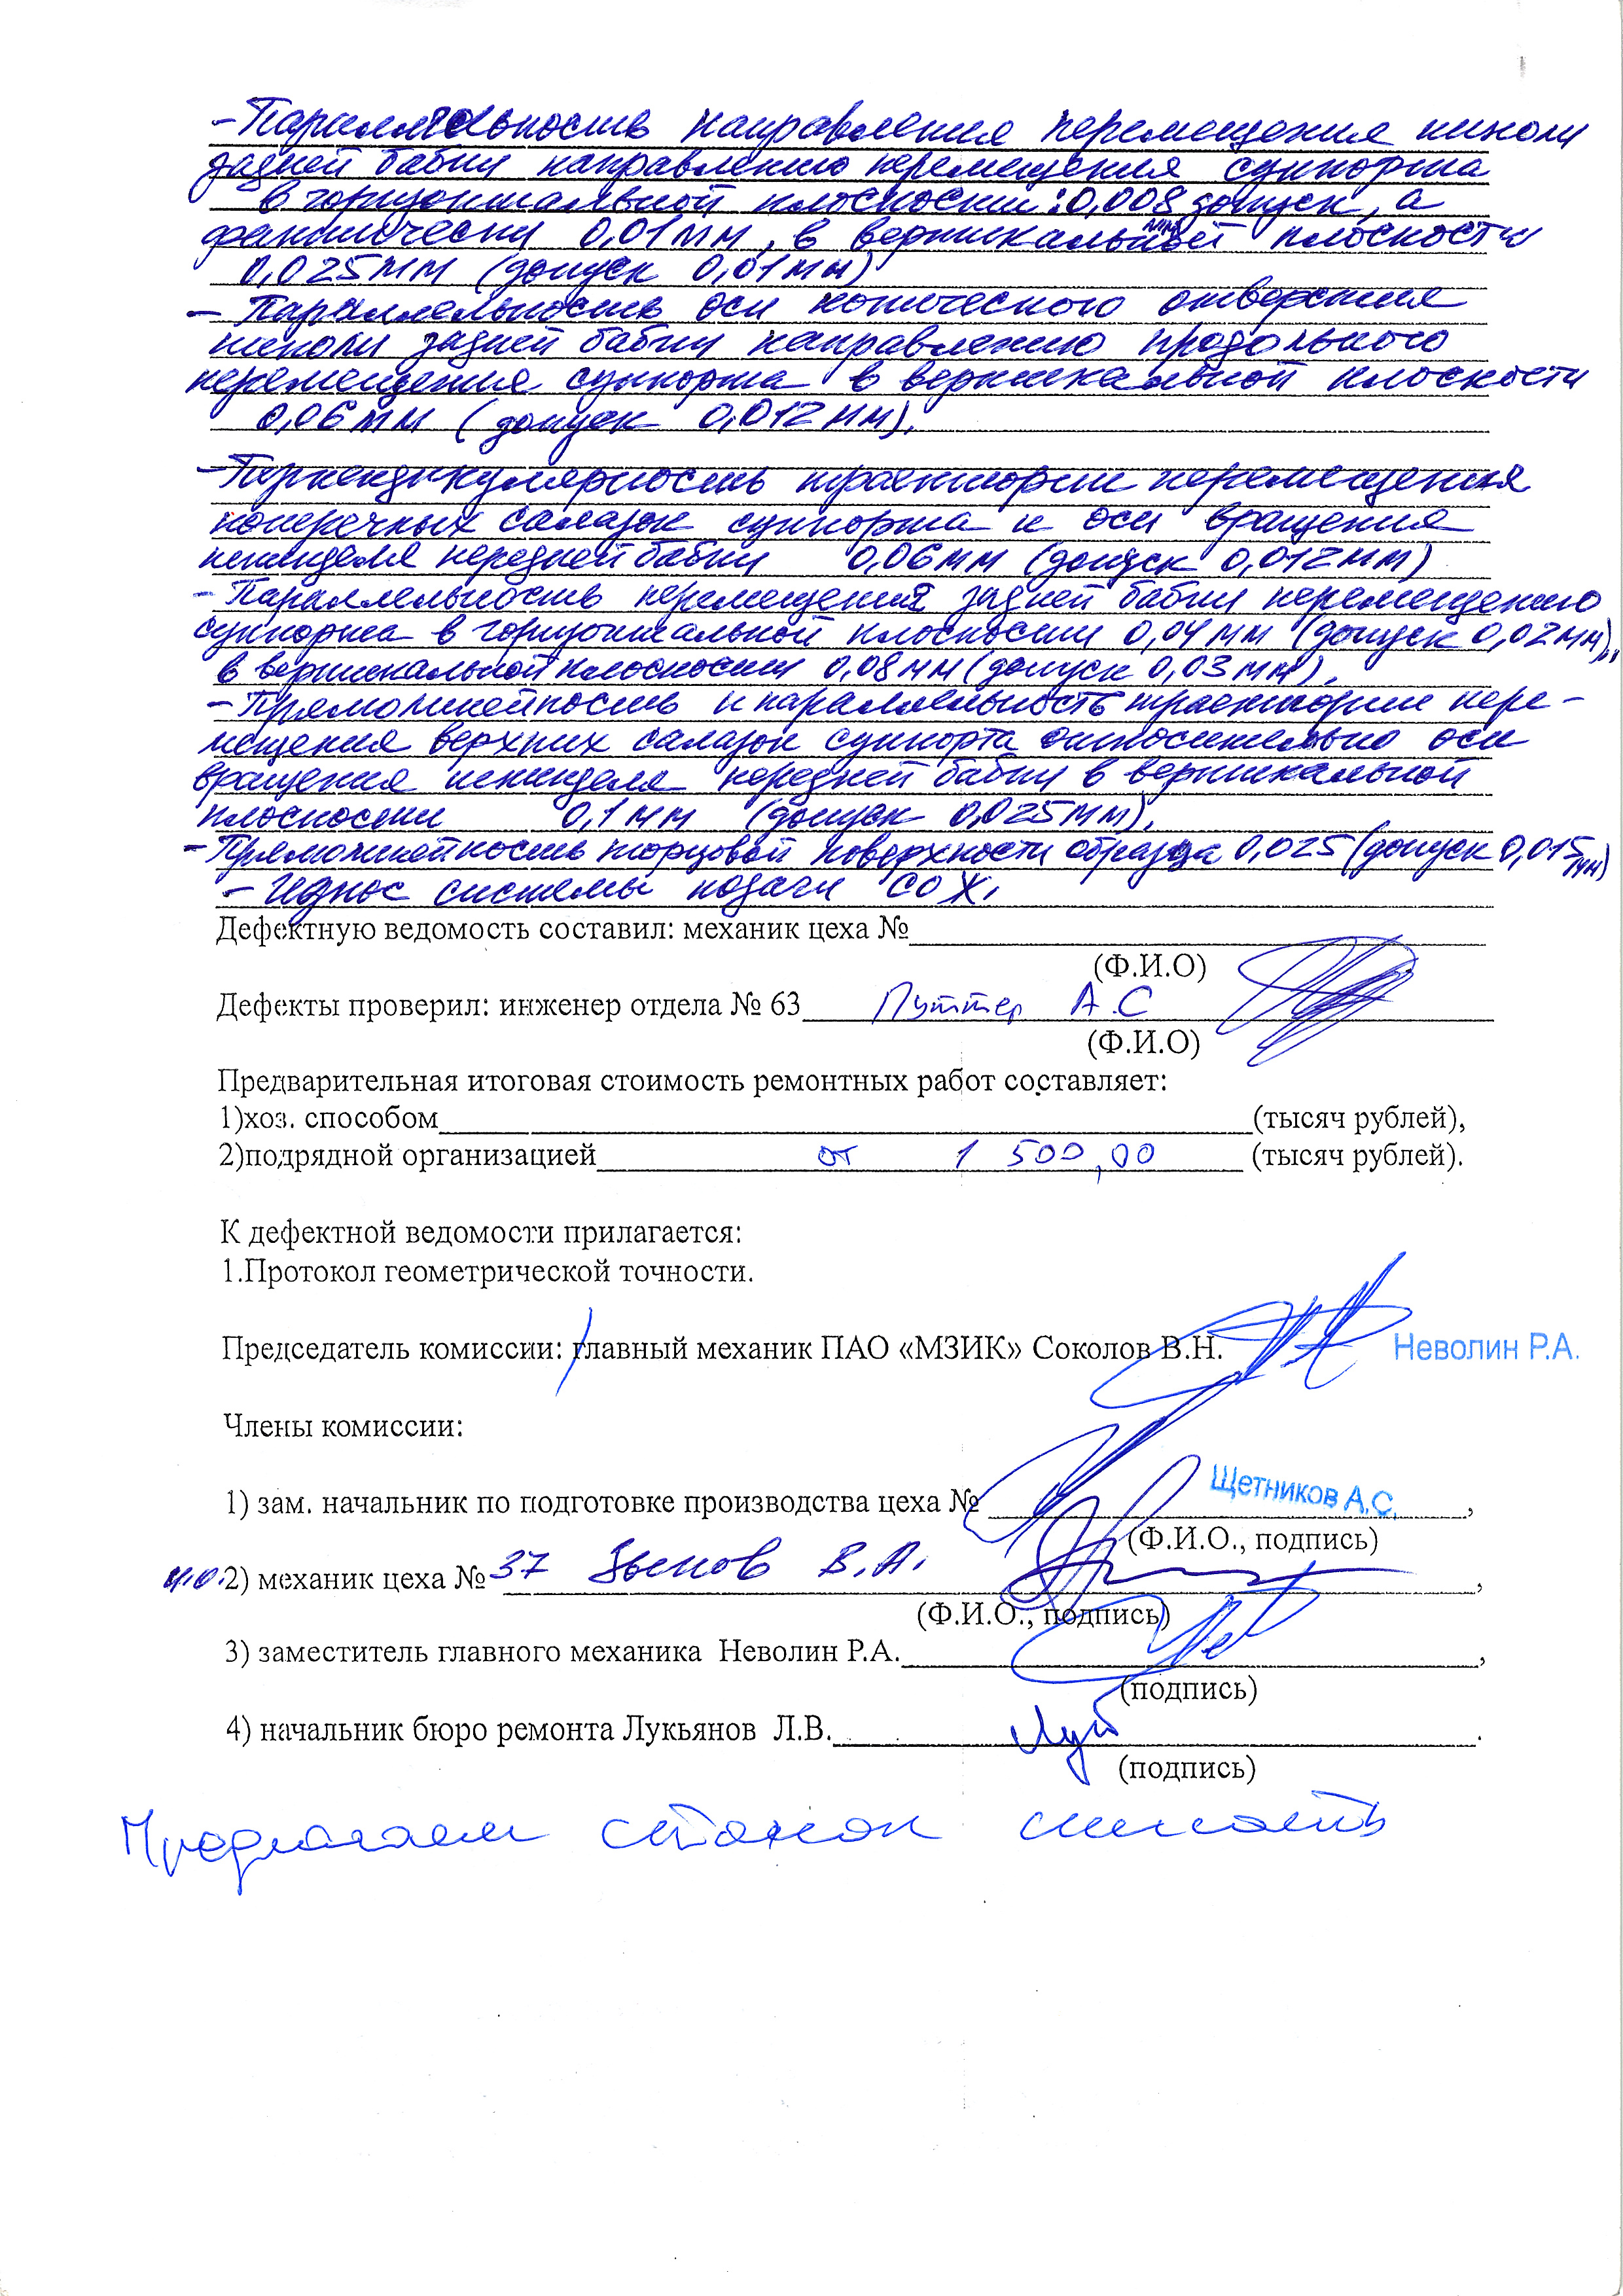 - Параллельность направления перемещения пиноли
задней бабки направлению перемещения суппорта
в горизонтальной плоскости: 0,008 допуск, а
мм
фактически 0,01мм, в вертикальной плоскости
0,025мм (допуск 0,01мм)
- Параллельность оси конического отверстия
пиноли задней бабки направлению продольного
перемещения суппорта в вертикальной плоскости
0,06мм (допуск 0,012мм).
- Перпендикулярность траектории перемещения
поперечных салазок суппорта к оси вращения
шпинделя передней бабки 0,06мм (допуск 0,012мм)
- Параллельность перемещения задней бабки перемещению
суппорта в горизонтальной плоскости 0,04мм (допуск 0,02мм),
в вертикальной плоскости 0,08мм (допуск 0,03мм).
- Прямолинейность и параллельность траектории пере-
мещения верхних салазок суппорта относительно оси
вращения шпинделя передней бабки в вертикальной
плоскости 0,1мм (допуск 0,025мм).
- Прямолинейность торцовой поверхности образца 0,025 (допуск 0,015мм)
- Износ системы подачи СОЖ.
Дефектную ведомость составил: механик цеха №
(Ф.И.О)
Дефекты проверил: инженер отдела № 63 Путтер А.С
(Ф.И.О)
Предварительная итоговая стоимость ремонтных работ составляет:
1)хоз. способом (тысяч рублей),
2)подрядной организацией от 1 500,00 (тысяч рублей).
К дефектной ведомости прилагается:
1.Протокол геометрической точности.
Председатель комиссии: главный механик ПАО «МЗИК» Соколов В.Н. Неволин Р.А.
Члены комиссии:
1) зам. начальник по подготовке производства цеха № Щетников А.С. ,
(Ф.И.О., подпись)
и.о. 2) механик цеха № 37 В.А. ,
(Ф.И.О., подпись)
3) заместитель главного механика Неволин Р.А. ,
(подпись)
4) начальник бюро ремонта Лукьянов Л.В. .
(подпись)
Предлагаем станок списать